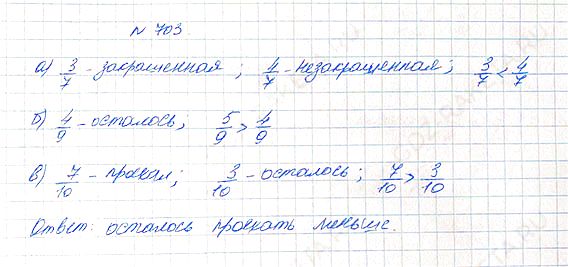 N 703
а) 3/7 - закрашенная; 4/7 - незакрашенная; 3/7 < 4/7
б) 4/9 - осталось; 5/9 > 4/9
в) 7/10 - проехал; 3/10 - осталось; 7/10 > 3/10
Ответ: осталось проехать меньше.